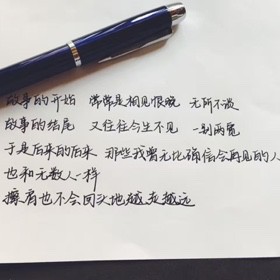 故事的开始 常常是相见恨晚 无所不谈
故事的结尾 又往往今生不见 一别两宽
于是后来的后来 那些我曾无比确信会再见的人
也和无数人一样
擦肩也不会回头地越走越远